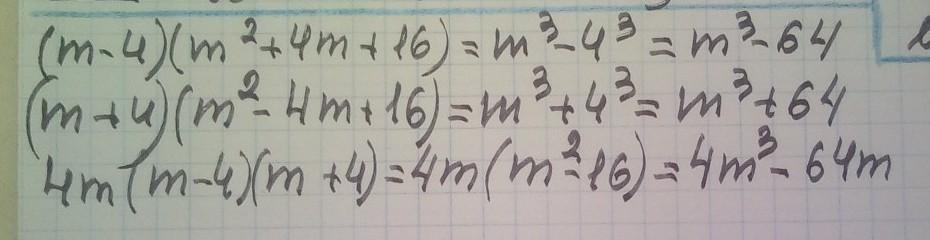 (m-4)(m²+4m+16)=m³-4³=m³-64
(m+4)(m²-4m+16)=m³+4³=m³+64
4m(m-4)(m+4)=4m(m²-16)=4m³-64m